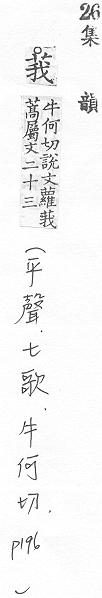 26
集韻
莪
牛何切說文蘿莪
蒿屬文二十三
(平聲.七歌.牛何切.p196)